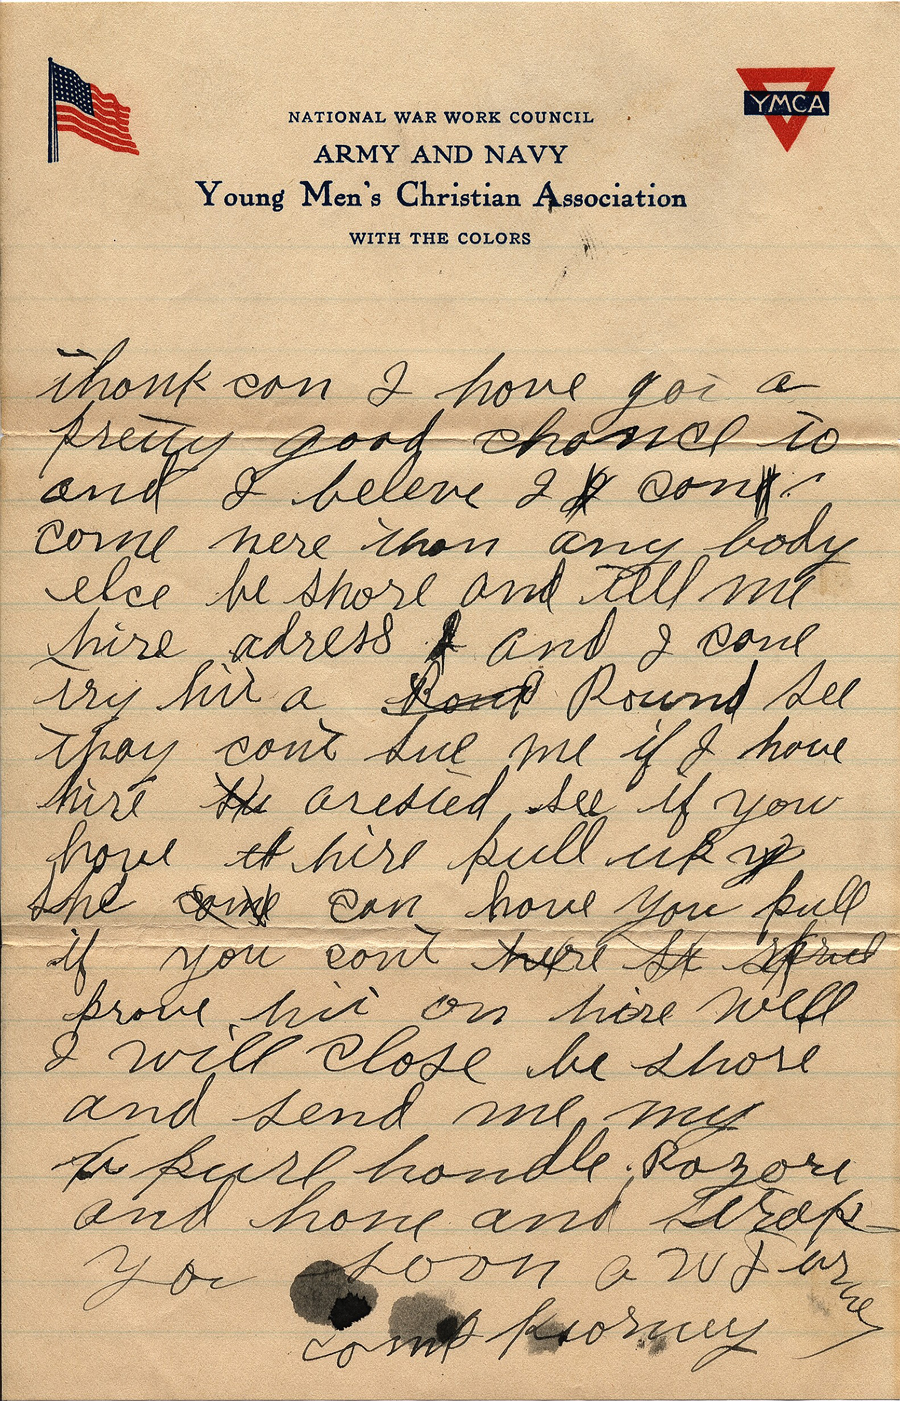 NATIONAL WAR WORK COUNCIL
YMCA
ARMY AND NAVY
Young Men's Christian Association
WITH THE COLORS
thank can I have got a
pretty good chance to
and I beleve I can
come nere than any body
else be shore and tell me
hire adress and I cane
try hit a Round see
thay cant sue me if I have
hire arested see if you
have hire pull up
she can have you pull
if you cant
prove hit on hire well
I will close be shore
and send me my
purl handle Razore
and hone and strop
you soon a W
camp